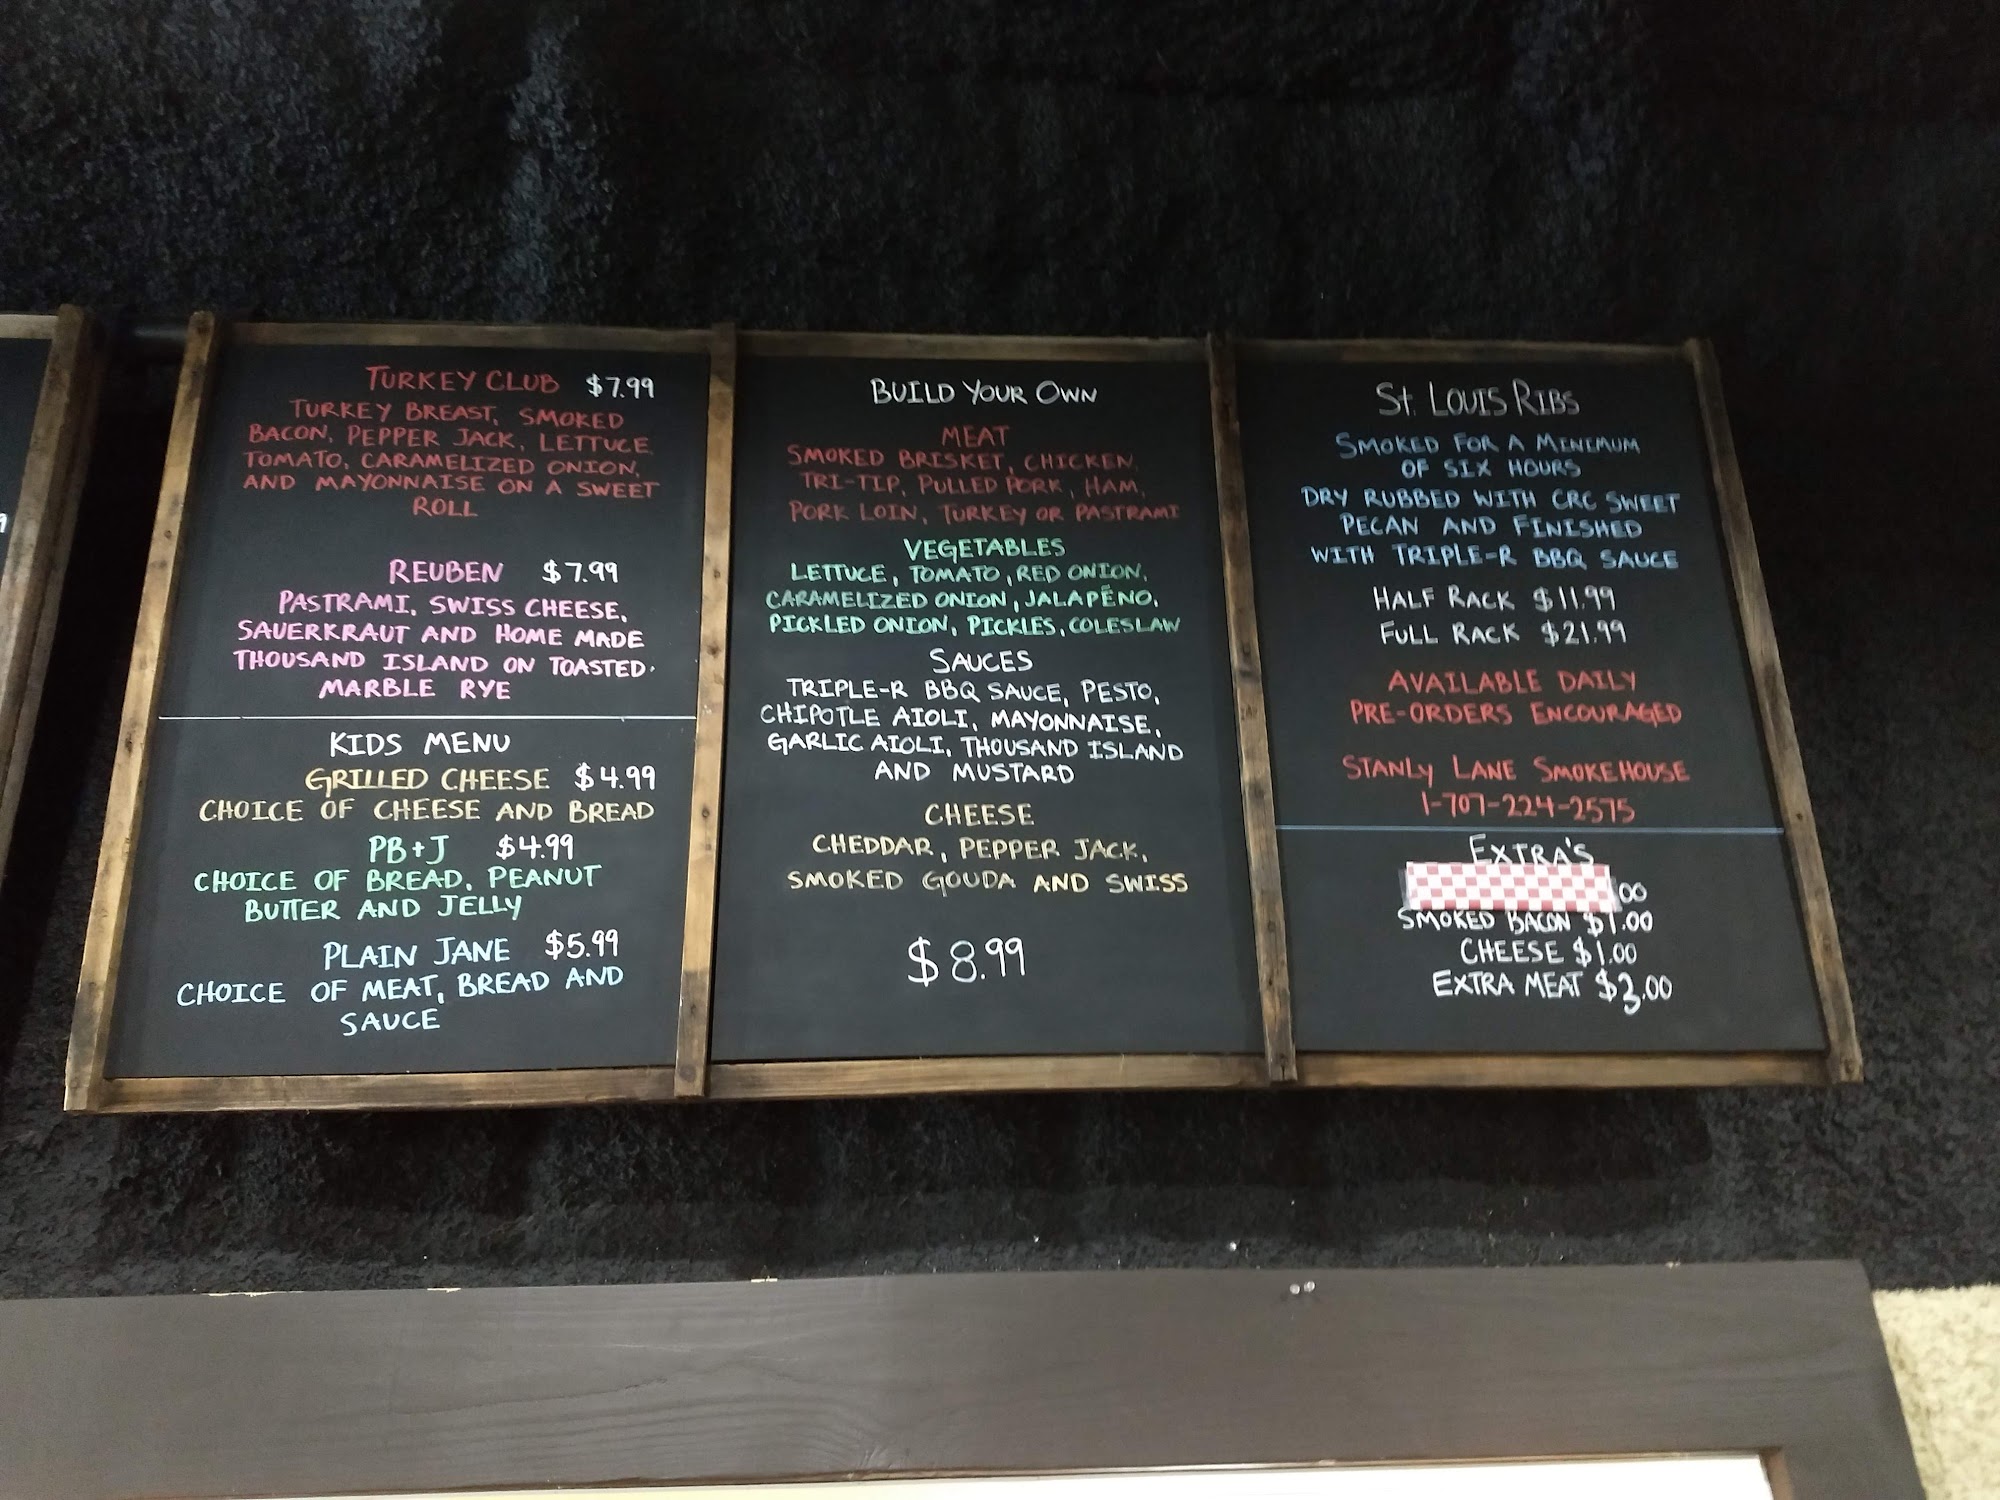 TURKEY CLUB $7.99
TURKEY BREAST, SMOKED
BACON, PEPPER JACK, LETTUCE,
TOMATO, CARAMELIZED ONION,
AND MAYONNAISE ON A SWEET
ROLL
REUBEN $7.99
PASTRAMI, SWISS CHEESE,
SAUERKRAUT AND HOME MADE
THOUSAND ISLAND ON TOASTED
MARBLE RYE
KIDS MENU
GRILLED CHEESE $4.99
CHOICE OF CHEESE AND BREAD
PB+J $4.99
CHOICE OF BREAD, PEANUT
BUTTER AND JELLY
PLAIN JANE $5.99
CHOICE OF MEAT, BREAD AND
SAUCE
BUILD YOUR OWN
MEAT
SMOKED BRISKET, CHICKEN,
TRI-TIP, PULLED PORK, HAM,
PORK LOIN, TURKEY OR PASTRAMI
VEGETABLES
LETTUCE, TOMATO, RED ONION,
CARAMELIZED ONION, JALAPEÑO,
PICKLED ONION, PICKLES, COLESLAW
SAUCES
TRIPLE-R BBQ SAUCE, PESTO,
CHIPOTLE AIOLI, MAYONNAISE,
GARLIC AIOLI, THOUSAND ISLAND
AND MUSTARD
CHEESE
CHEDDAR, PEPPER JACK,
SMOKED GOUDA AND SWISS
$8.99
St. LOUIS RIBS
SMOKED FOR A MINIMUM
OF SIX HOURS
DRY RUBBED WITH CRC SWEET
PECAN AND FINISHED
WITH TRIPLE-R BBQ SAUCE
HALF RACK $11.99
FULL RACK $21.99
AVAILABLE DAILY
PRE-ORDERS ENCOURAGED
STANLY LANE SMOKEHOUSE
1-707-224-2575
EXTRA'S
00
SMOKED BACON $1.00
CHEESE $1.00
EXTRA MEAT $3.00